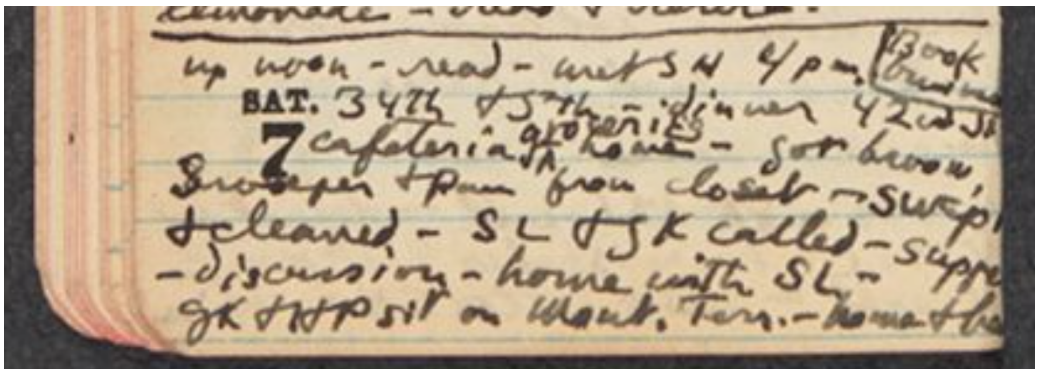 lemonade –
up noon – read – met SH 4 pm. Book
SAT. 34th + 5th – dinner 42nd St
7 cafeteria groceries home – got broom,
Sweeper + pan from closet – swept
+ cleaned – SL + GK called – suppe
– discussion – home with SL –
GK + HP sit on Mount. Terr. – home + be